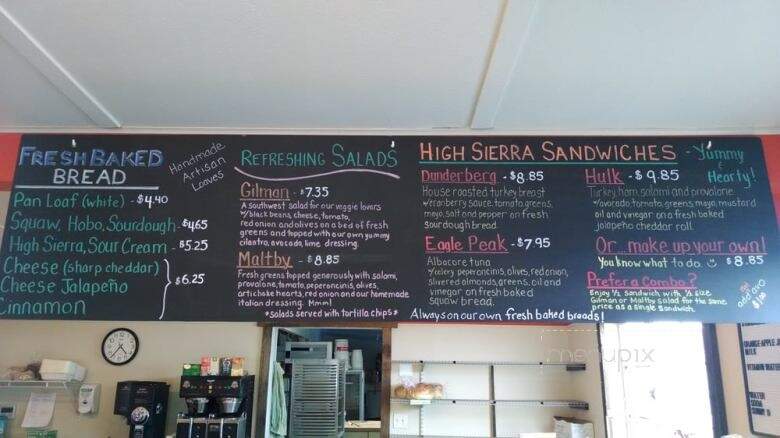 FRESH BAKED
BREAD
Handmade
Artisan
Loaves
Pan Loaf (white) - $4.40
Squaw, Hobo, Sourdough - $4.65
High Sierra, Sour Cream - $5.25
Cheese (sharp cheddar)
Cheese Jalapeño
Cinnamon
$6.25
REFRESHING SALADS
Gilman - $7.35
A southwest salad for our veggie lovers
w/black beans, cheese, tomato,
red onion and olives on a bed of fresh
greens and topped with our own yummy
cilantro, avocado, lime dressing.
Maltby - $8.85
Fresh greens topped generously with salami,
provalone, tomato, peperoncinis, olives,
artichoke hearts, red onion and our homemade
italian dressing. Mmm!
*salads served with tortilla chips*
HIGH SIERRA SANDWICHES - Yummy
& Hearty!
Dunderberg - $8.85
House roasted turkey breast
w/cranberry sauce, tomato, greens,
mayo, salt and pepper on fresh
sourdough bread.
Eagle Peak - $7.95
Albacore tuna
w/celery, peperoncinis, olives, red onion,
slivered almonds, greens, oil and
vinegar on fresh baked
squaw bread.
Hulk - $9.85
Turkey, ham, salami and provalone
w/avocado, tomato, greens, mayo, mustard
oil and vinegar on a fresh baked
jalapeño cheddar roll.
Or... make up your own!
You know what to do $8.85
Prefer a Combo?
Enjoy ½ sandwich with ½ size
Gilman or Maltby salad for the same
price as a single sandwich.
add avo
$1.00
Always on our own fresh baked breads!
ORANGE-APPLE
MILK